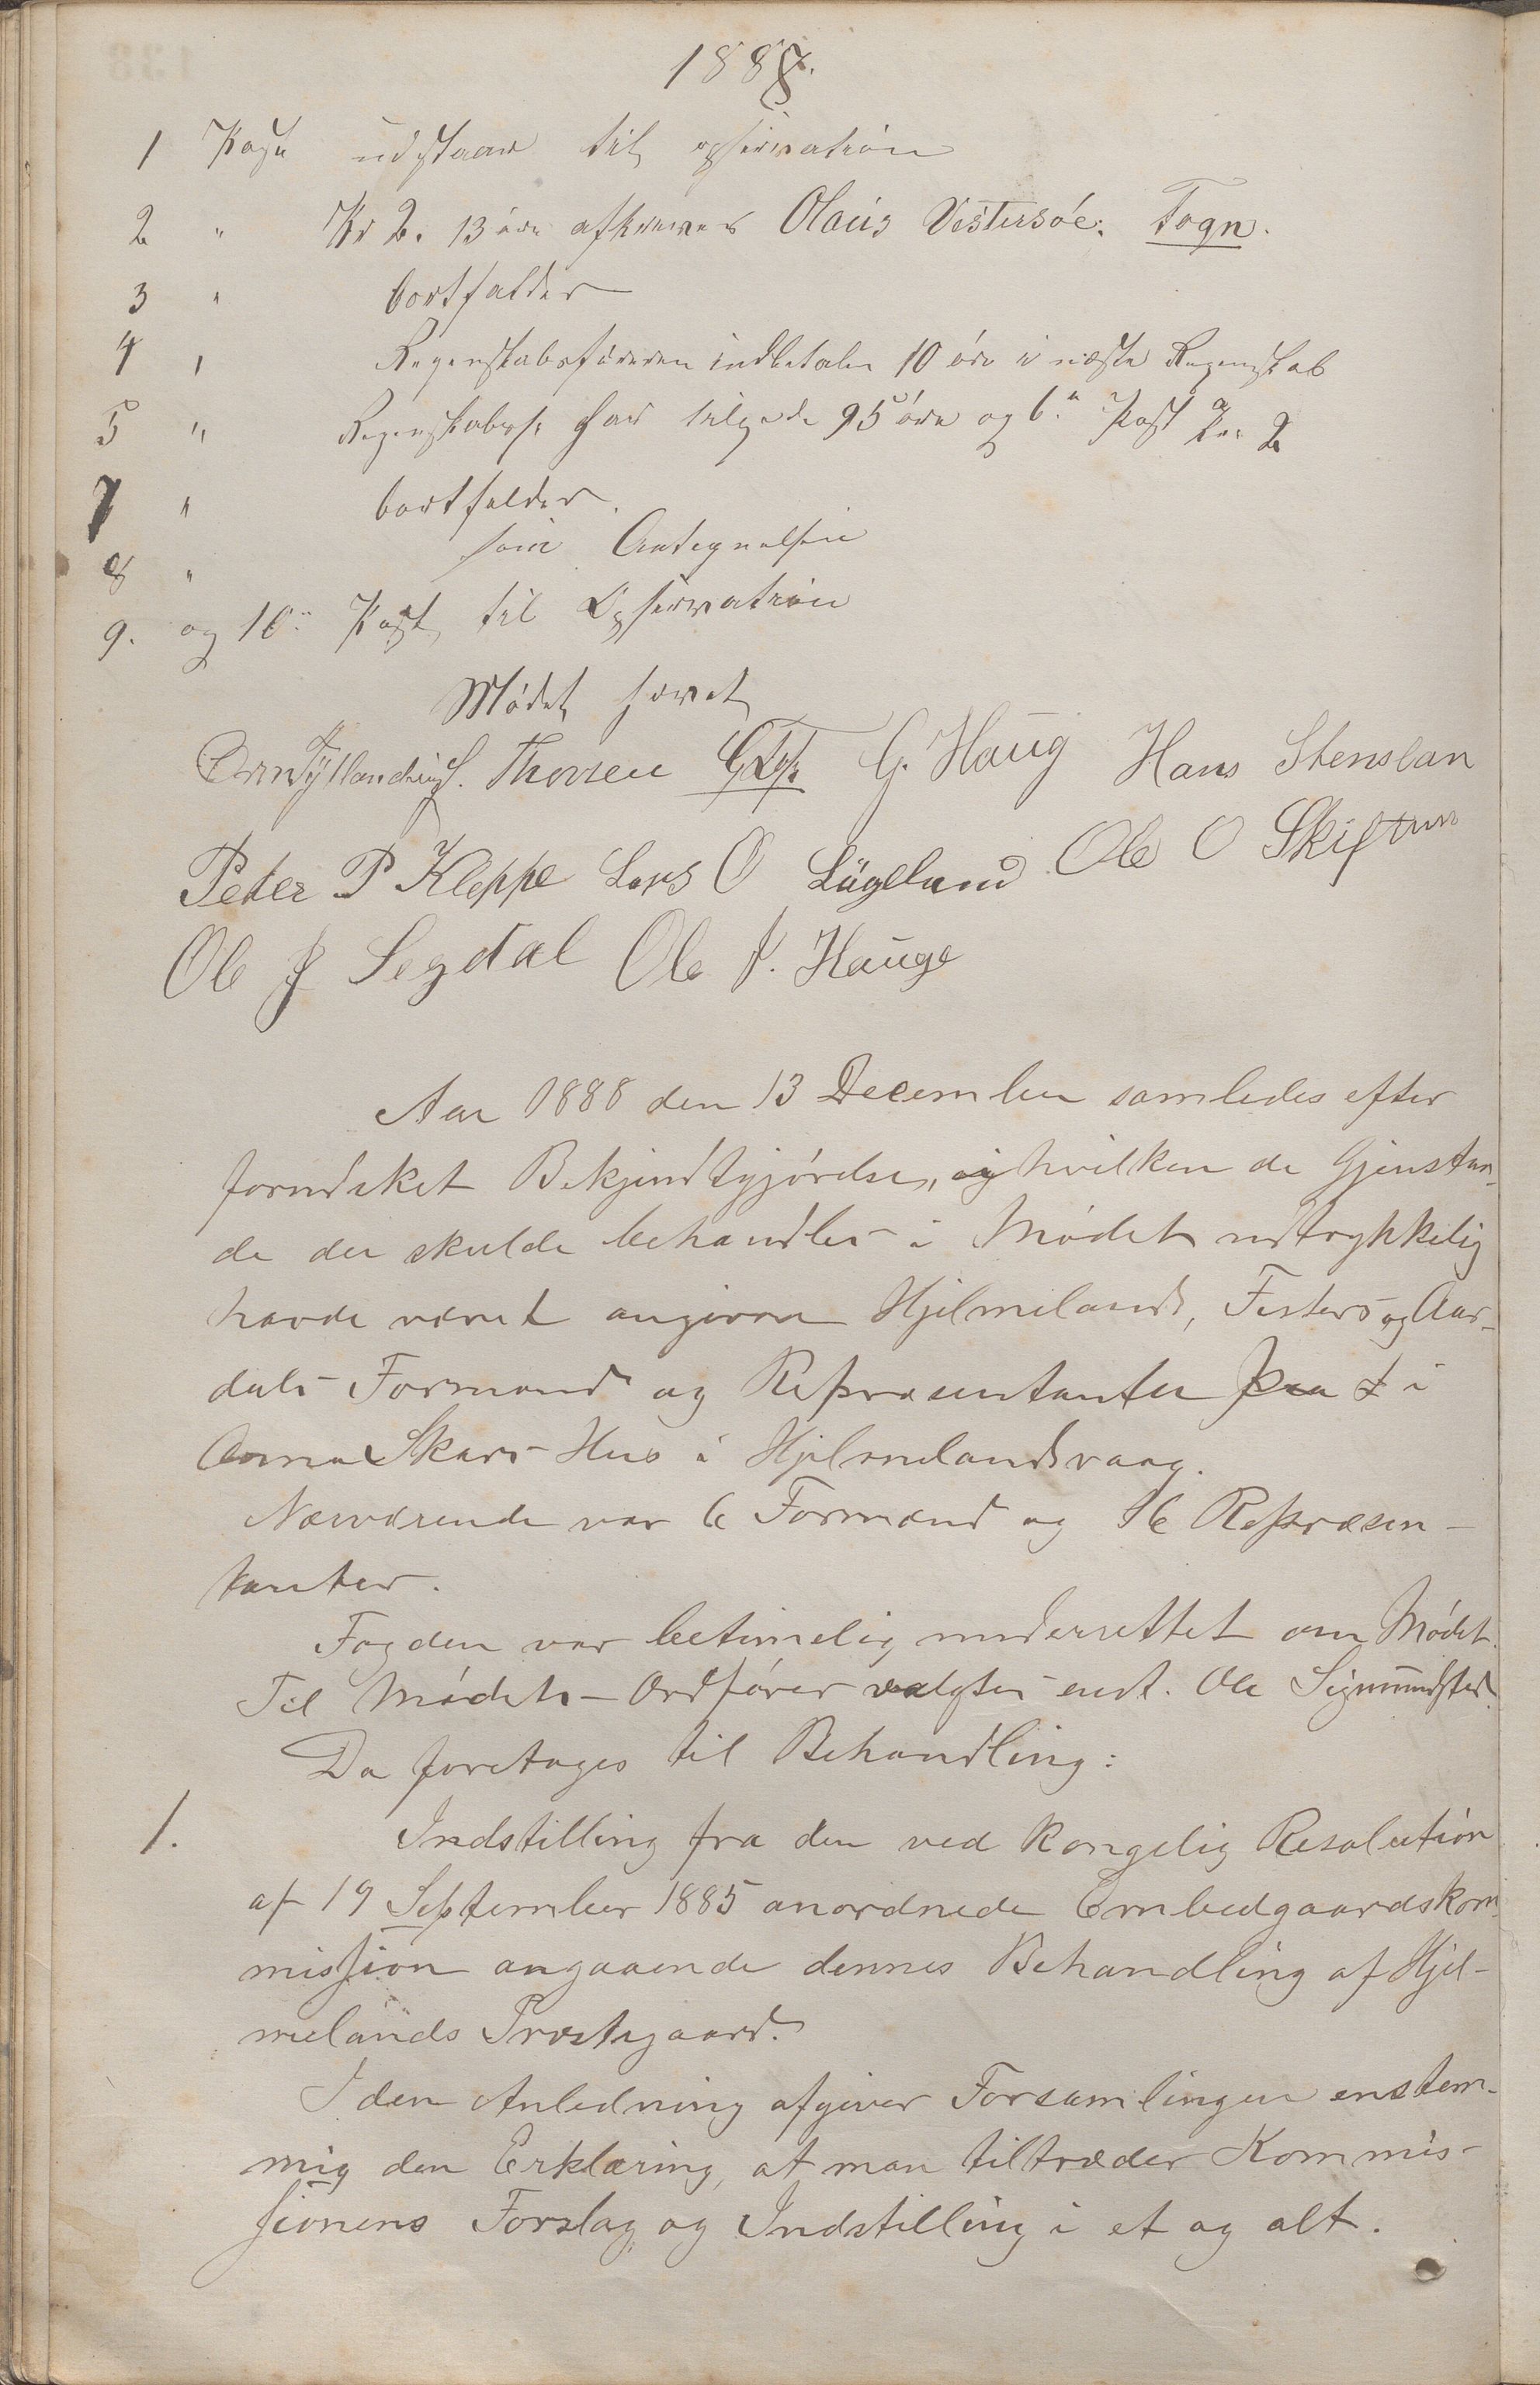 1888.
1 Post udstaar til opservation
2 " Kr 2. 13 øre afkræves Olaus Vistersøe. Fogn.
3 " bortfalder
4 " Regenskabsføreren indbetaler 10 øre i næste Regenskab
5 " Regenskabsf. har tilgode 95 øre og 6.te Post Kr. 2
7 " bortfalder.
8 " som Antegnelsen
9. og 10de Post til Opservation
Mødet hævet
Thorsen G. Haug Hans Stenslan
Peder P Kleppe Lars O Lügeland Ole O Skiftun
Ole J Segdal Ole J. Hauge
Aar 1888 den 13 December samledes efter
forudsket Bekjendtgjørelse, i hvilken de Gjenstan-
de der skulde behandles i Mødet udtrykkelig
havde været angivne Hjelmelands, Fisters og Aar-
dals Formænd og Repræsentanter i
Anna Skars Hus i Hjelmelandsvaag.
Nærværende var 6 Formænd og 16 Repræsen-
tanter.
Fogden var betimelig underrettet om Mødet.
Til Mødets Ordfører valgtes enst. Ole Sigmundstad.
Da foretages til Behandling:
1. Indstilling fra den ved Kongelig Resolution
af 19 September 1885 anordnede Embedgaardskom-
mission angaaende dennes Behandling af Hjel-
melands Præstegaard.
I den Anledning afgiver Forsamlingen enstem-
mig den Erklæring, at man tiltræder Kommis-
sionens Forslag og Indstilling i et og alt.